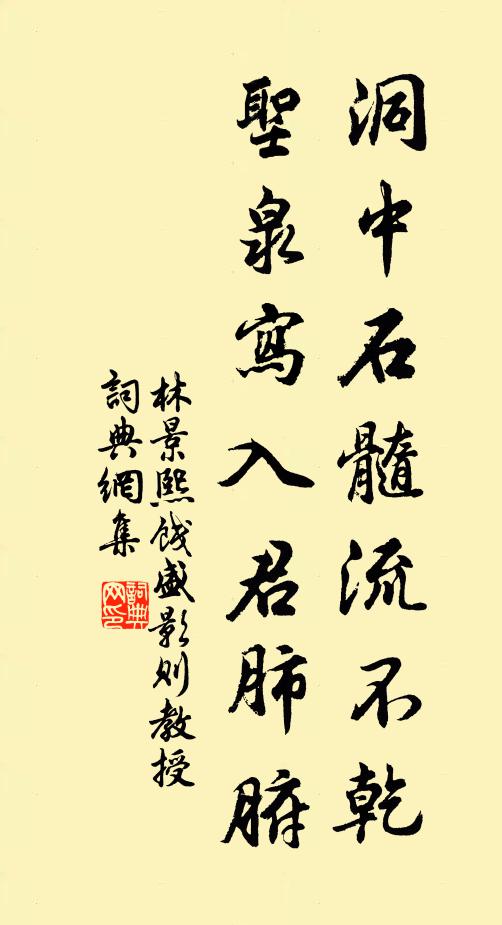 洞中石髓流不乾
聖泉寫入君肺腑
林景熙餞盛影則教授
詞典網集
詞典網印